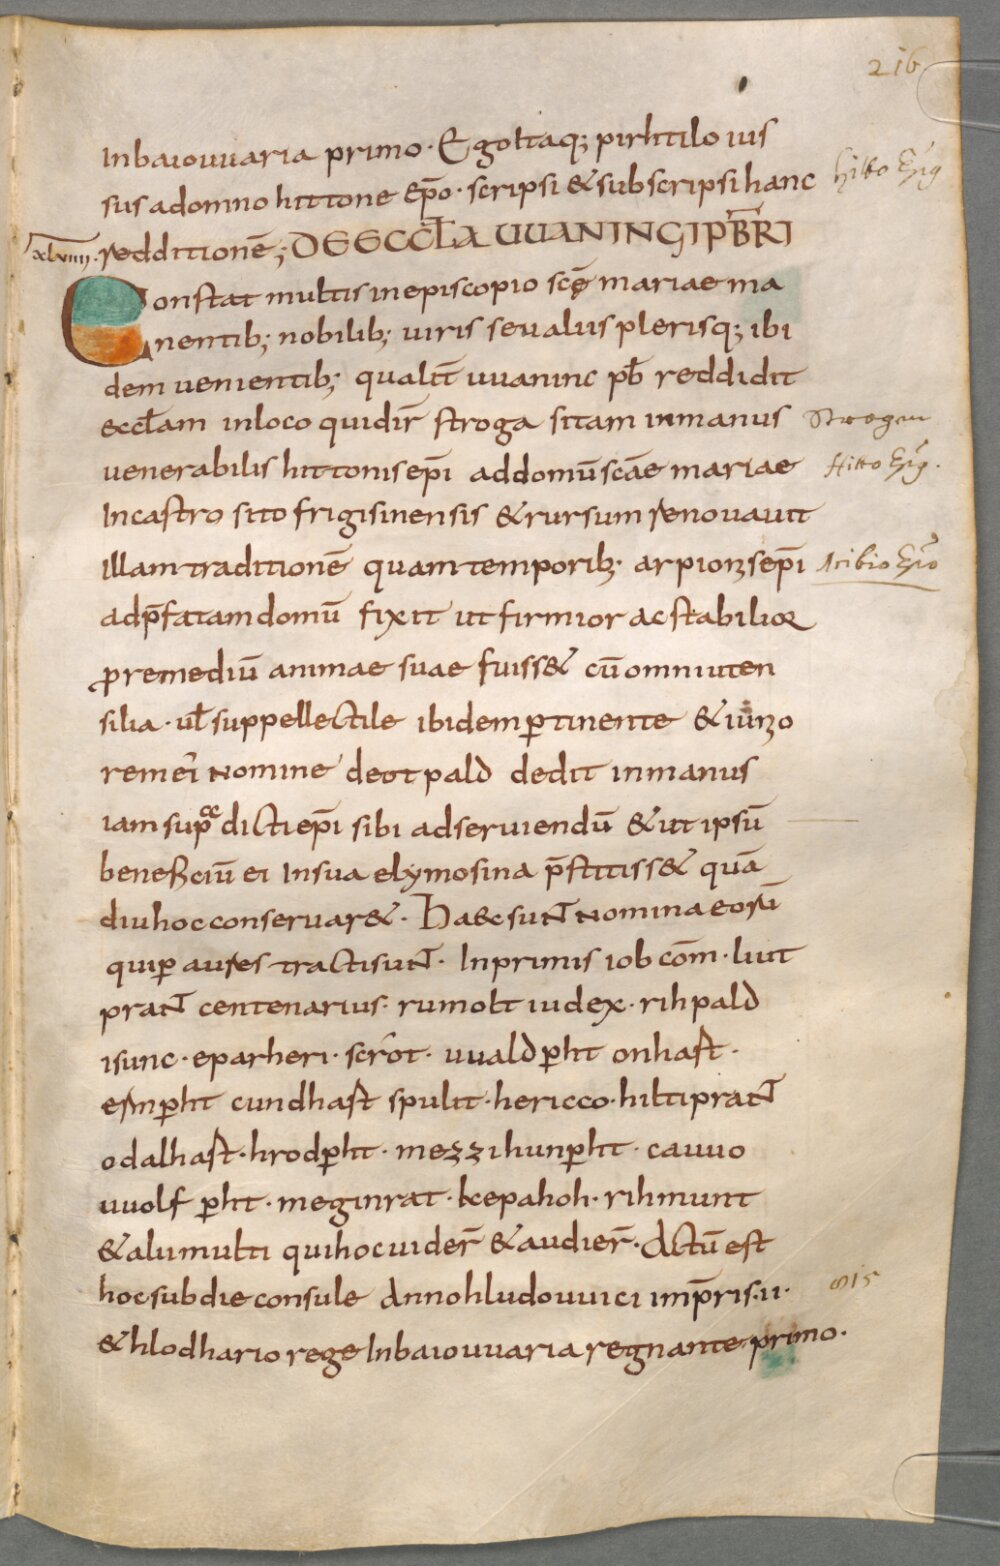 216
In baiouuaria primo · Ego tagaq; pirhtilo ius
sus a domno hittone ep̄o · scripsi & subscripsi hanc
hitto Ep̄s
xlviiii. redditionē; DE ECCL̄A UUANINGI PR̄BRI
Constat multis in episcopio scę mariae ma
nentib; nobilib; uiris seu aliis plerisq; ibi
dem uenientib; qualit̄ uuaninc pb̄ reddidit
eccl̄am in loco qui dir̄ stroga sitam in manus
Strogen
uenerabilis hittonis ep̄i ad domū scāe mariae
Hitto Ep̄s.
In castro sito frigisinensis & rursum renouauit
illam traditionē quam temporib; arpionis ep̄i
Atibio Ep̄o
ad p̄fatam domū fixit ut firmior ac stabilior
p remediū animae suae fuiss& cū omni uten
silia · ul̄ suppellectile ibidem ꝑtinente & iunio
rem ei nomine deotpald dedit in manus
iam sup̱ dicti ep̄i sibi ad seruiendū & ut ipsū
beneficiū ei In sua elymosina p̄stitiss& quā
diu hoc conseruar& · Haec sunt nomina eorū
qui ꝑ aures tracti sunt · Inprimis iob com̄ · liut
prant centenarius · rumolt iudex · rihpald
isunc · eparheri · scrot · uualdꝑht onhast ·
esinꝑht cundhast spulit · hericco · hiltiprant
odalhast · hrodꝑht · mezzi hunꝑht · cauuo
uuolfꝑht · meginrat · kepahoh · rihmunt
& alii multi qui hoc uider̄ & audier̄ · Actū est
hoc sub die consule Anno hludouuici imp̄ris · ii ·
815
& hlodhario rege In baiouuaria regnante primo ·